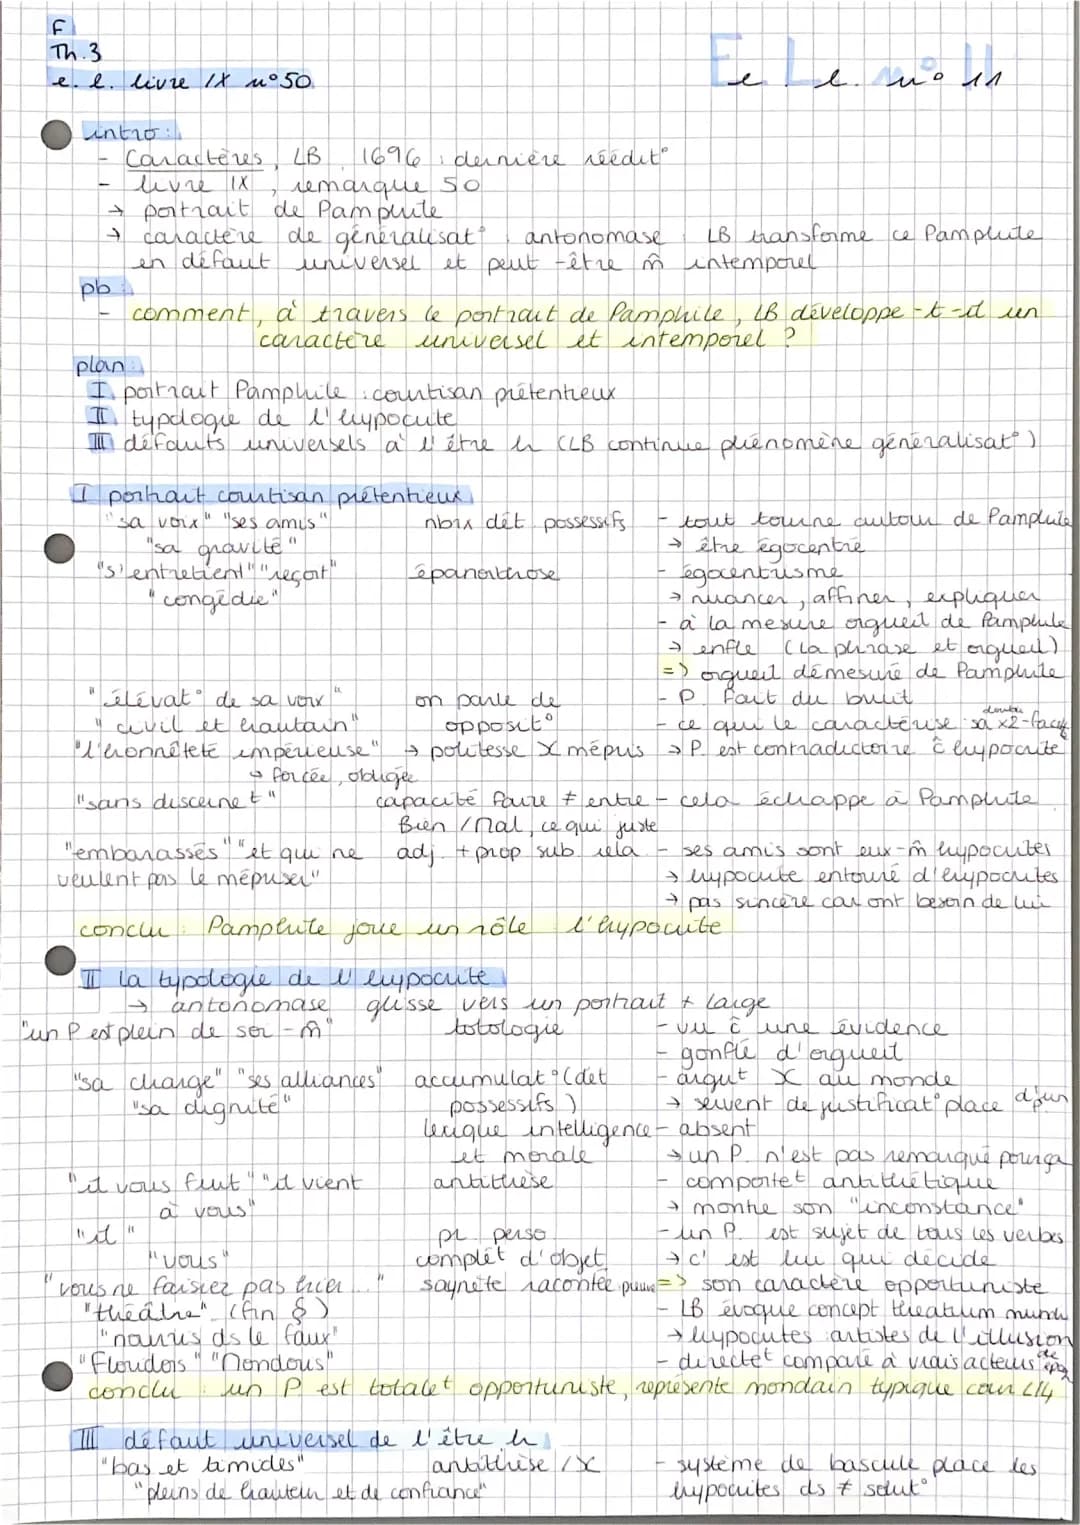 F
Th.3
e.l. livre IX n°50
E.L. n° 11
e.l. n° 11
intro:
- Caractères, LB, 1696 : dernière réédit°
- livre IX, remarque 50
→ portrait de Pamphile
→ caractère de généralisat° : antonomase : LB transforme ce Pamphile
en défaut universel et peut-être m̂ intemporel
pb:
- comment, à travers le portrait de Pamphile, LB développe-t-il un
caractère universel et intemporel ?
plan:
I portrait Pamphile : courtisan prétentieux
II typologie de l'hypocrite
III défauts universels à l'être h (LB continue phénomène généralisat°)
I portrait courtisan prétentieux
"sa voix" "ses amis" nbrx dét. possessifs - tout tourne autour de Pamphile
"sa gravité" → être égocentré
"s'entretient" "reçoit" épanorthose - égocentrisme
"congédie" → nuancer, affiner, expliquer
- à la mesure orgueil de Pamphile
→ enfle (la phrase et orgueil)
=> orgueil démesuré de Pamphile
"élévat° de sa voix" on parle de - P. fait du bruit
"civil et hautain" opposit° - ce qui le caractérise : sa x2-face double
"l'honnêteté impérieuse" → politesse X mépris → P. est contradictoire ĉ hypocrite
↳ forcée, obligée
"sans discernet" capacité faire ≠ entre - cela échappe à Pamphile
Bien / Mal, ce qui juste
"embarassés" "et qui ne adj. + prop sub rela - ses amis sont eux-m̂ hypocrites
veulent pas le mépriser" → hypocrite entouré d'hypocrites
→ pas sincère car ont besoin de lui
conclu : Pamphile joue un rôle : l'hypocrite
II la typologie de l'hypocrite
→ antonomase glisse vers un portrait + large
"un P est plein de soi-m̂" totologie - vu ĉ une évidence
- gonflé d'orgueil
"sa charge" "ses alliances" accumulat° (dét - argut X au monde
"sa dignité" possessifs) → servent de justificat° place d'un
lexique intelligence - absent
et morale → un P. n'est pas remarqué pour ça
"il vous fuit" "il vient antithèse - comportet antithétique
à vous" → montre son "inconstance"
"il" pr. perso - un P. est sujet de tous les verbes
"vous" complét d'objet → c'est lui qui décide
"vous ne faisiez pas hier..." saynète racontée => son caractère opportuniste
"théâtre" (fin §) - LB évoque concept theatrum mundi
"nourris ds le faux" → hypocrites artistes de l'illusion
"Floridors" "Mondoris" - directet comparé à vrais acteurs de
conclu : un P est totalet opportuniste, représente mondain typique cour L14
III défaut universel de l'être h
"bas et timides" antithèse / X - système de bascule place les
"pleins de hauteur et de confiance" hypocrites ds ≠ solut°